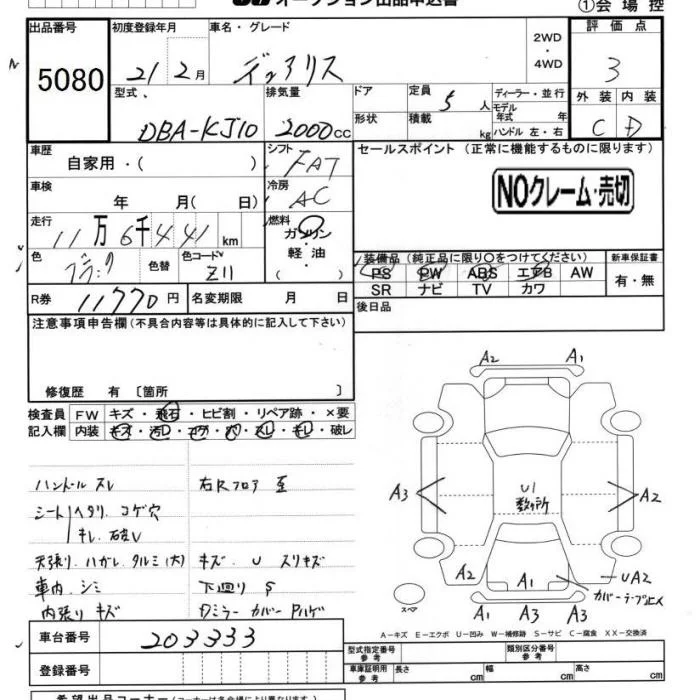 オークション出品申込書
①会場控
出品番号
5080
初度登録年月
21年2月
車名・グレード
デュアリス
2WD
・
4WD
評価点
3
型式
DBA-KJ10
排気量
2000cc
ドア
形状
定員
5人
積載
kg
ディーラー・並行
モデル年式 年
ハンドル 左・右
外装 内装
C D
車歴
自家用・( )
シフト
FAT
セールスポイント (正常に機能するものに限ります)
NOクレーム・売切
車検
年 月( 日)
冷房
AC
走行
11万6千441km
燃料
ガソリン
軽油
( )
色
ブラック
色替
色コード
Z11
装備品 (純正品に限り○をつけてください)
PS PW ABS エアB AW
SR ナビ TV カワ
新車保証書
有・無
R券
11770円
名変期限 月 日
後日品
注意事項申告欄(不具合内容等は具体的に記入して下さい)
修復歴 有 〔箇所 〕
検査員 FW キズ・飛石・ヒビ割・リペア跡・×要
記入欄 内装 キズ・汚レ・コゲ・穴・スレ・キレ・破レ
ハンドル スレ
右Rフロア 歪
シート ヘタリ コゲ穴
キレ 破レ
天張り ハガレ タルミ(大)
キズ U スリキズ
車内 シミ
下廻り S
内張り キズ
Dミラーカバー Pハゲ
A2 A1
A3
U1
数ヶ所
A2
A2 A1
UA2
カバーテープ止メ
スペア
A1 A3 A3
A-キズ E-エクボ U-凹み W-補修跡 S-サビ C-腐食 XX-交換済
車台番号
203333
登録番号
型式指定番号
参考
類別区分番号
参考
車庫証明用
参考
長さ cm 幅 cm 高さ cm
希望出品コーナー